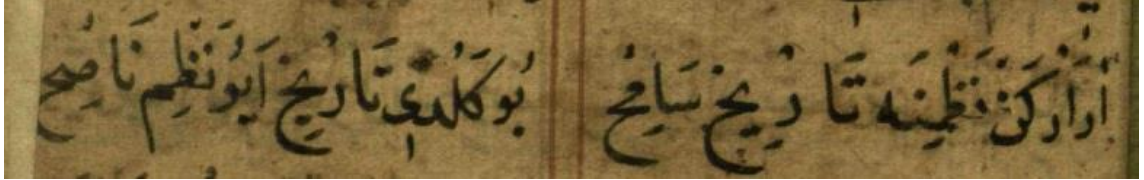 اَرَارْكَنْ نَظْمِنَه تَارِيخِ سَانِحْ بُو كَلْدِى تَارِيخِ اَيُو نَظْمِ نَاصِحْ